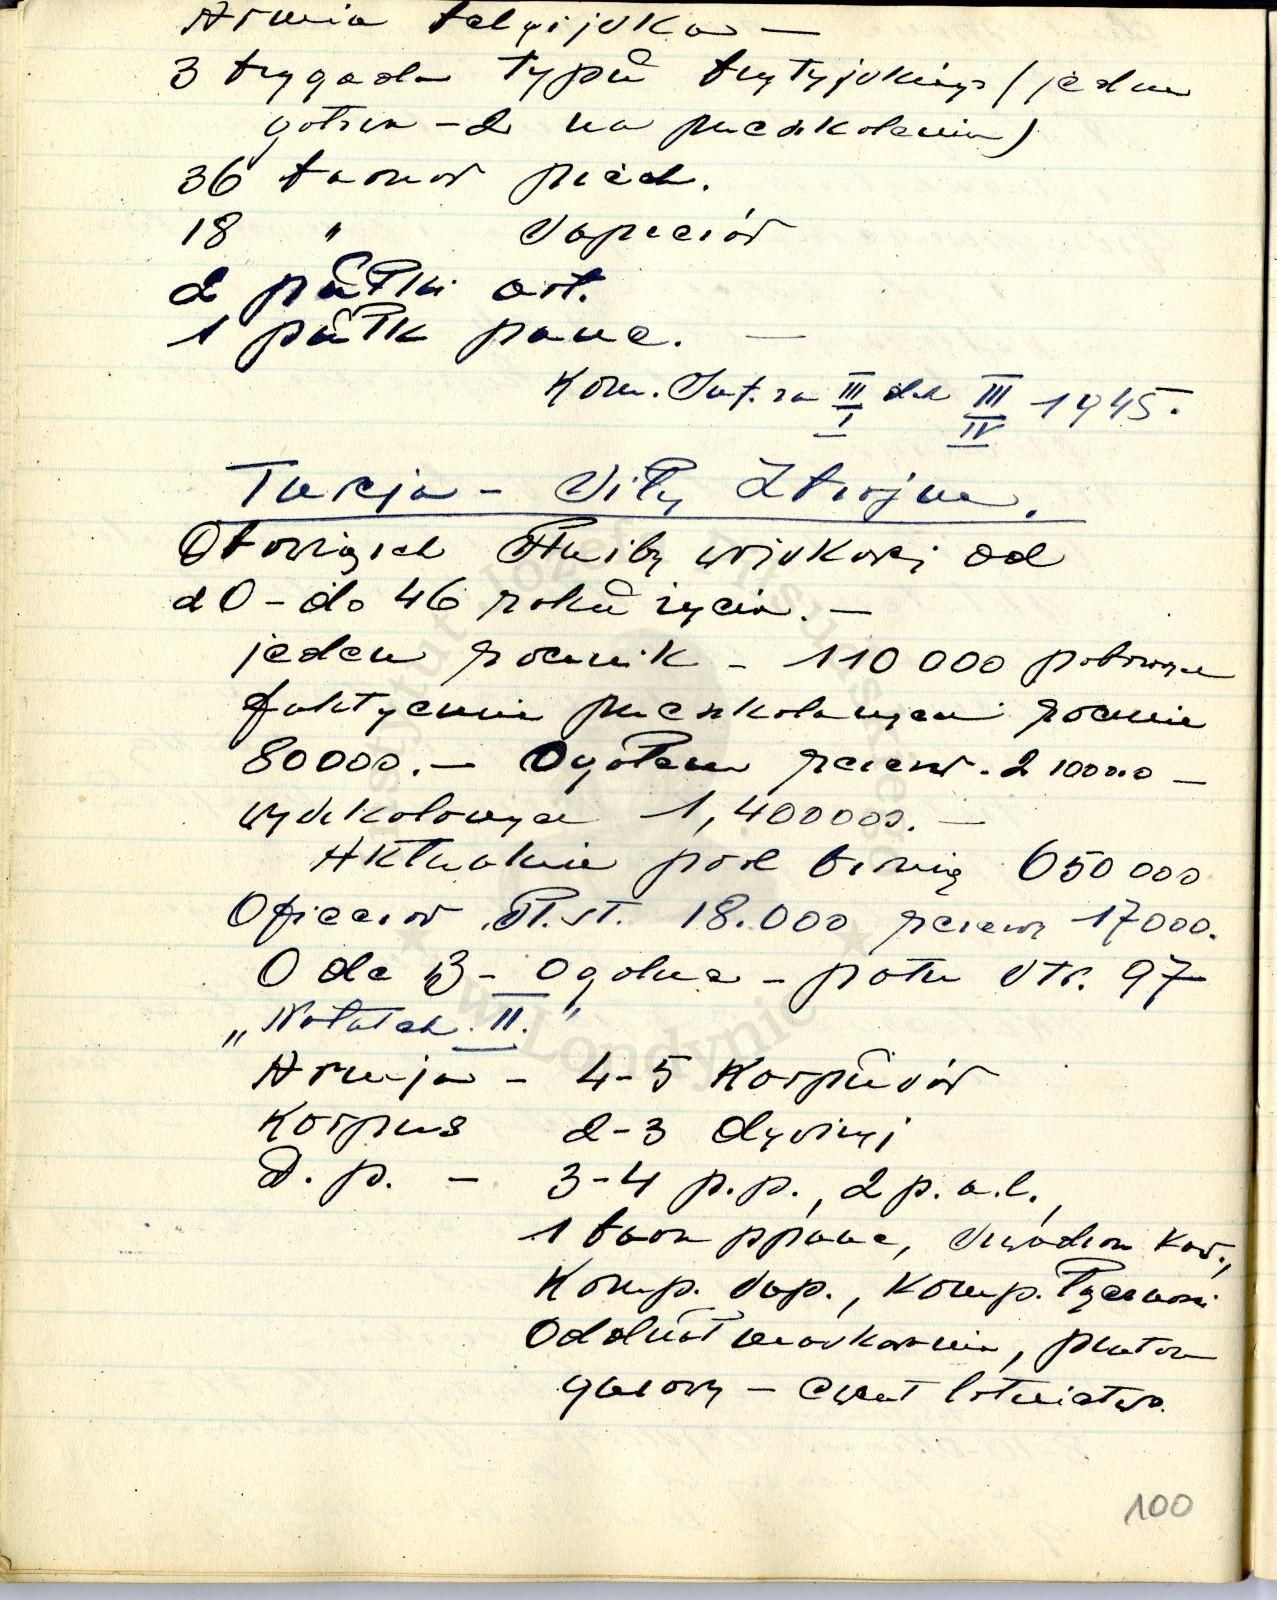 Armia belgijska —
3 brygada typu brytyjskiego (jedna
gotowa - 2 na przeszkoleniu)
36 baonów piech.
18 " saperów
2 pułki art.
1 pułk panc. —
Kom. Inf. za III/I dek III/IV 1945.
Turcja - Siły Zbrojne.
Obowiązek służby wojskowej od
20 - do 46 roku życia. —
jeden rocznik - 110 000 poborowych
faktycznie przeszkolonych rocznie
80000. — Ogółem rezerw. 2 100000 —
wyszkolonych 1,400000. —
Aktualnie pod bronią 650 000
Oficerów sł. st. 18.000 rezerwy 17000.
O de B - Ogólne - patrz str. 97
„Notatek II."
Armja - 4-5 Korpusów
Korpus 2-3 dywizyj
D. p. - 3-4 p.p., 2 p.a.l.,
1 baon ppanc, szwadron kaw.,
Komp. sap., Komp. łączności
Oddział maskowania, pluton
gazowy - lotnictwo.
100
Instytut Józefa Piłsudskiego
w Londynie